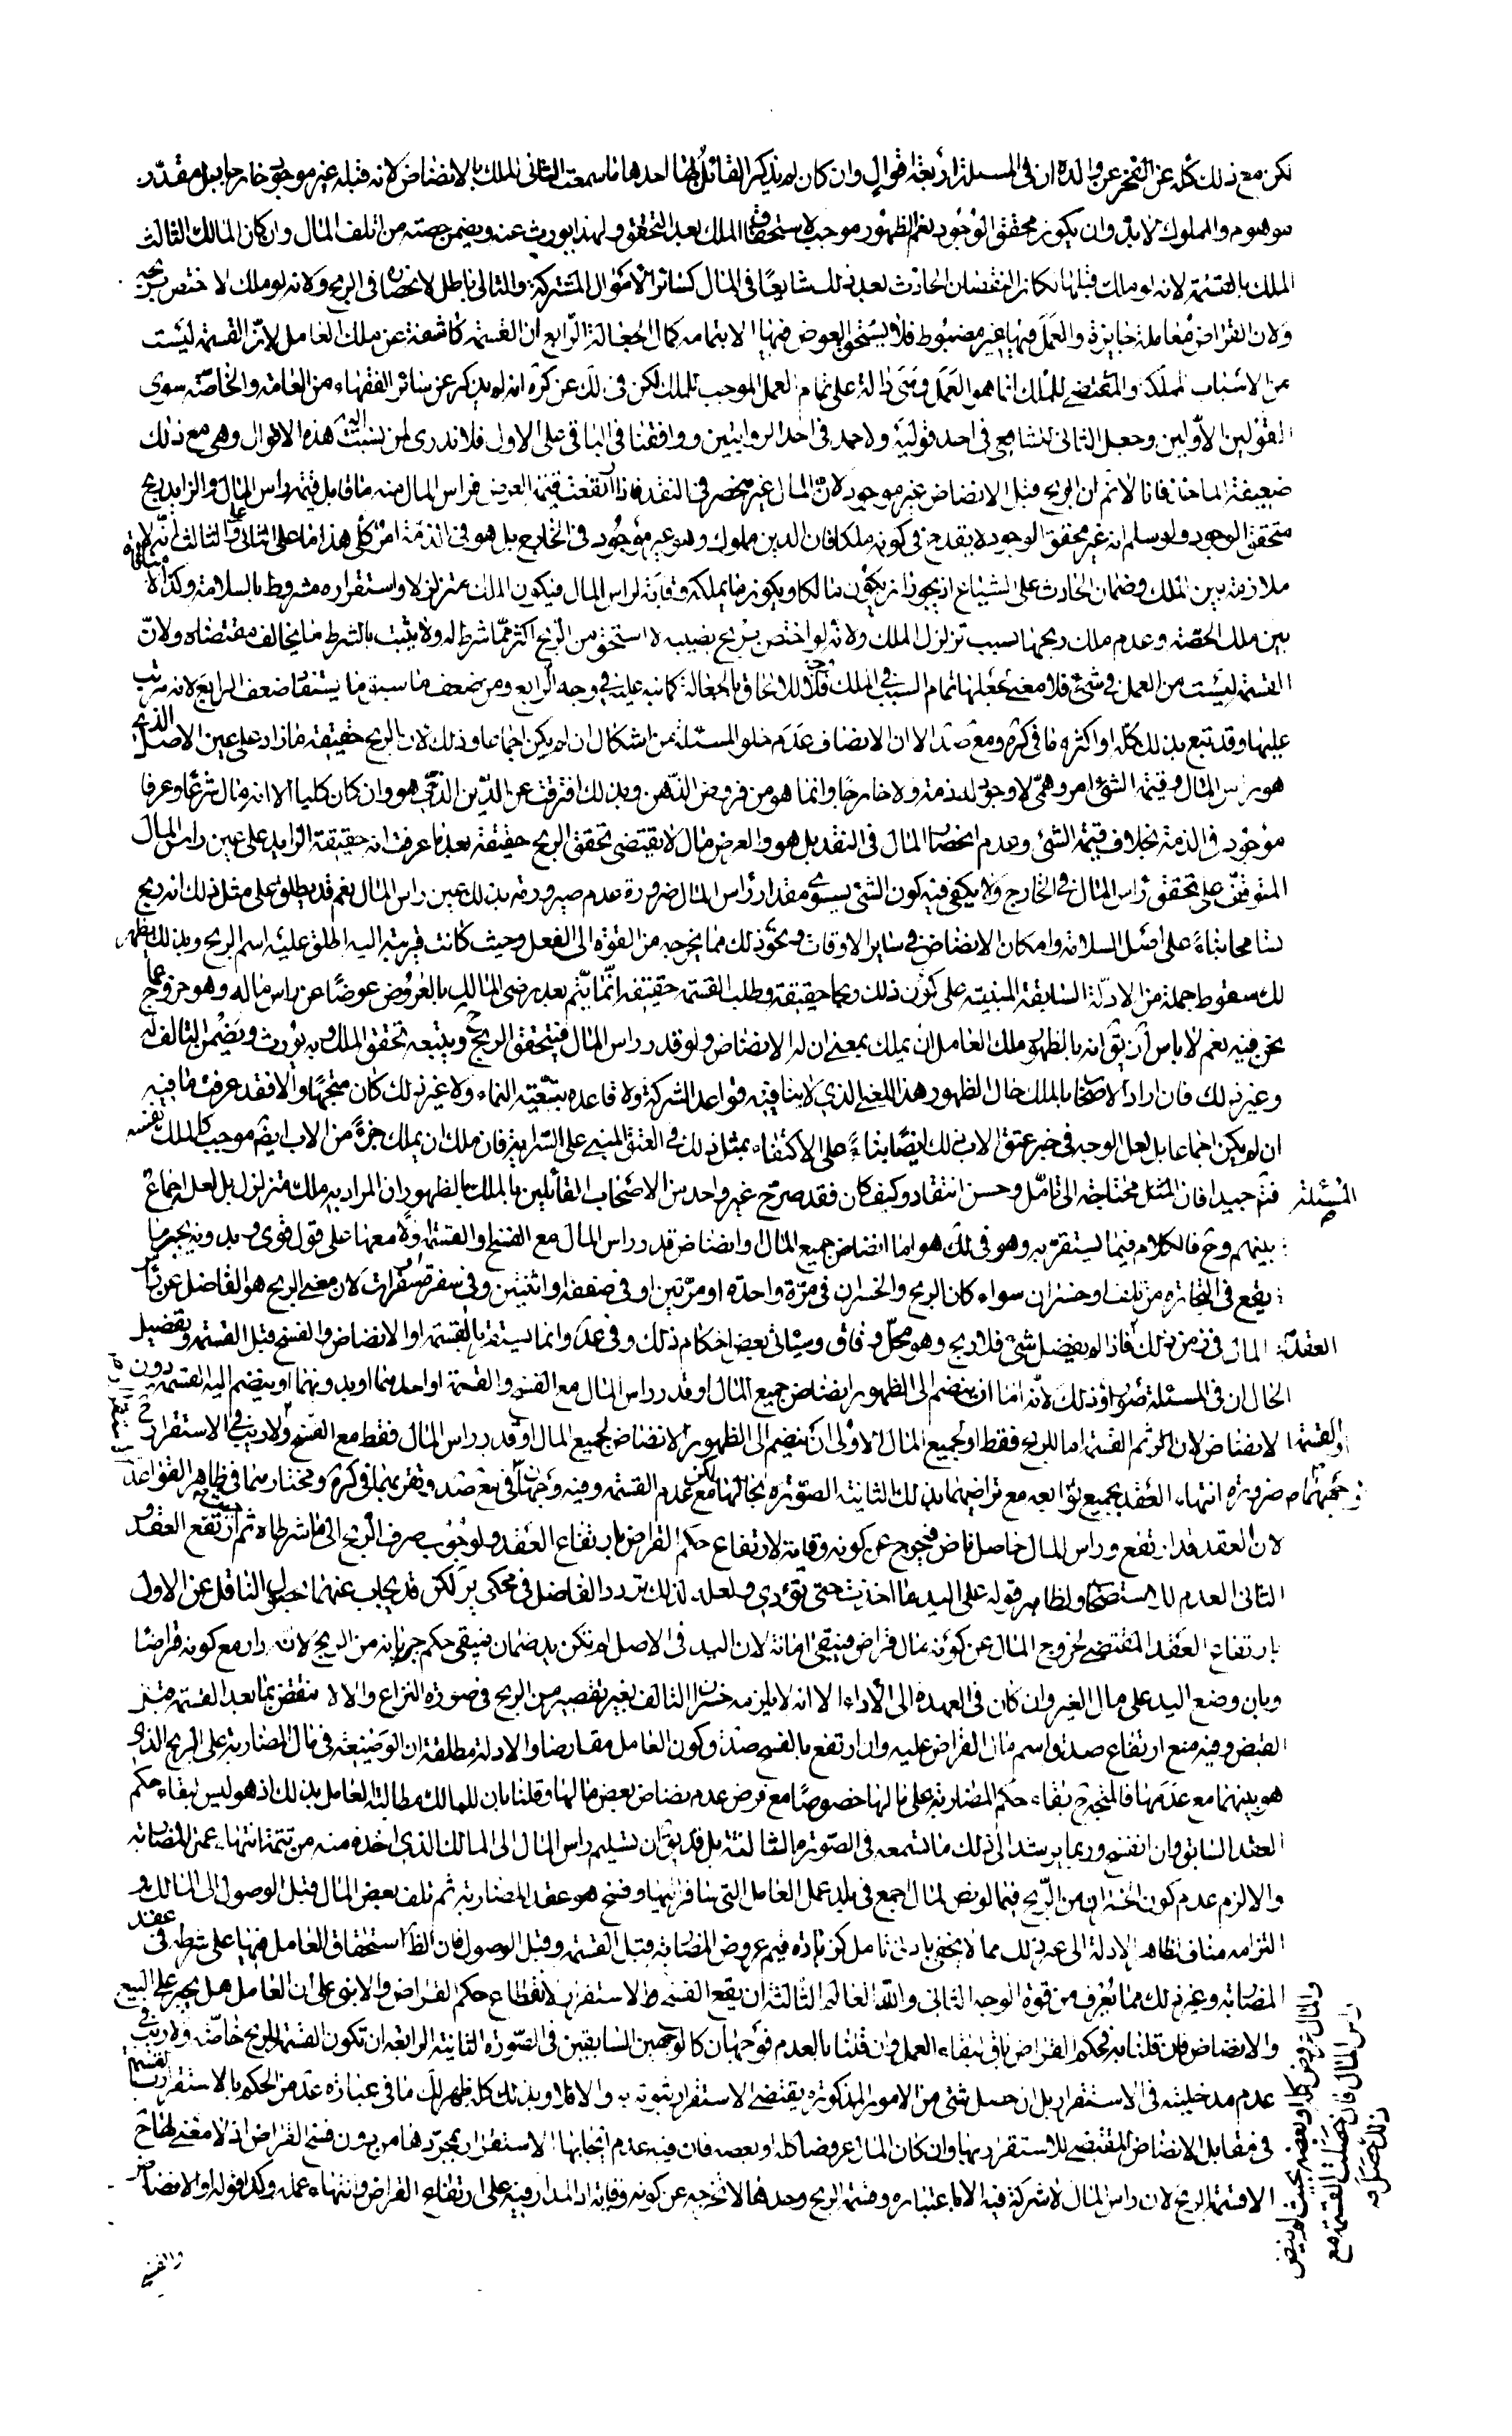 لكن مع ذلك كله عن الفخر عن والده ان فى المسئلة اربعة اقوال وان كان لم يذكر القائل بها احدها ما سمعت الثانى يملك بالانضاض لانه قبله غير موجود خارجا بل مقدر
موهوم والمملوك لا بد وان يكون محقق الوجود نعم الظهور موجب لاستحقاق الملك بعد التحقق ولهذا يورث عنه ويضمن حصته من اتلف المال وان كان المالك الثالث
الملك بالقسمة لانه لو ملك قبلها لكان النقصان الحادث بعد ذلك شايعا فى المال كسائر الاموال المشتركة والتالى باطل لانحصاره فى الربح ولانه لو ملك لاختص بربحه
ولان القراض معاملة جايزة والعمل فيها غير مضبوط فلا يستحق العوض فيها الا بتمامه كمال الجعالة الرابع ان القسمة كاشفة عن ملك العامل لان القسمة ليست
من الاسباب المملكة والمقتضى للملك انما هو العمل وهى دالة على تمام العمل الموجب للملك لكن فى لك عن كره انه لم يذكر عن سائر الفقهاء من العامة والخاصة سوى
القولين الاولين وجعل الثانى للشافعى فى احد قوليه ولاحمد فى احد الروايتين ووافقنا فى الباقى على الاول فلا ندرى لمن ينسب هذه الاقوال وهى مع ذلك
ضعيفة الماخذ فانا لا نم ان الربح قبل الانضاض غير موجود لان المال غير منحصر فى النقد فاذا ارتفعت قيمة العرض فراس المال منه ما قابل قيمة راس المال والزايد ربح
متحقق الوجود ولو سلم انه غير محقق الوجود لا يقدح فى كونه ملكا فان الدين مملوك وهو غير موجود فى الخارج بل هو فى الذمة امر كلى هذا اما على الثانى واما على الثالث انه لا
ملازمة بين الملك وضمان الحادث على الشياع اذ يجوز ان يكون مالكا ويكون ما يملكه وقاية لراس المال فيكون الملك متزلزلا واستقراره مشروط بالسلامة وكذا لا منافاة
بين ملك الحصة وعدم ملك ربحها بسبب تزلزل الملك ولانه لو اختص بربح نصيبه لاستحق من الربح اكثر مما شرط له ولا يثبت بالشرط ما يخالف مقتضاه ولان
القسمة ليست من العمل فى شئ فلا معنى لجعلها تمام السبب فى الملك فلا وجه للالحاق بالجعالة كما نبه عليه فى وجه الرابع ومن ضعف ما سبق ما يستفاد ضعف الرابع لانه مرتب
عليها وقد تبع بذلك كله او اكثره ما فى كره ومع صد الا ان الانصاف عدم خلو المسئلة من اشكال ان لم يكن اجماعا وذلك لان الربح حقيقة ما زاد على عين الاصل الذى
هو راس المال وقيمة الشئ امر وهمى لا وجود له لا ذمة ولا خارجا وانما هو من فروض الذهن وبذلك افترقت عن الدين الذى هو وان كان كليا الا انه مال شرعا وعرفا
موجود فى الذمة بخلاف قيمة الشئ وعدم انحصار المال فى النقد بل هو والعرض مال لا يقتضى تحقق الربح حقيقة بعد ما عرفت ان حقيقة الزايد على عين راس المال
المتوقف على تحقق راس المال فى الخارج ولا يكفى فيه كون الشئ يسوى مقدار راس المال ضرورة عدم صيرورته بذلك عين راس المال نعم قد يطلق على مثل ذلك انه ربح
تسامحا بناء على اصل السلامة وامكان الانضاض فى ساير الاوقات ونحو ذلك مما يخرجه من القوة الى الفعل وحيث كانت قريبة اليه اطلق عليه اسم الربح وبذلك يظهر
لك سقوط جملة من الادلة السابقة المبنية على كون ذلك ربحا حقيقة وطلب القسمة حقيقة انما يتم بعد رضى المالك بالعروض عوضا عن راس ماله وهو خروج عما
نحن فيه نعم لا باس ان يق انه بالظهور ملك العامل ان يملك بمعنى ان له الانضاض ولو قدر راس المال فيتحقق الربح ويتبعه تحقق الملك وبه يورث ويضمن التالف له
وغير ذلك فان اراد الاصحاب بالملك حال الظهور هذا المعنى الذى لا ينافيه قواعد الشركة ولا قاعدة تبعية النماء ولا غير ذلك كان متجها والا فقد عرفت ما فيه
ان لم يكن اجماعا بل لعل الوجه فى خبر عتق الاب ذلك ايضا بناء على الاكتفاء بمثل ذلك فى العتق المبنى على السراية فان ملك ان يملك جزء من الاب ايضا موجب كالملك نفسه
فتم جيدا فان المسئلة محتاجة الى تامل وحسن انتقاد وكيف كان فقد صرح غير واحد من الاصحاب القائلين بالملك بالظهور ان المراد به ملك متزلزل بل لعله اجماع
بينهم وح فالكلام فيما يستقر به وهو فى لك هو اما انضاض جميع المال وانضاض قدر راس المال مع الفسخ او القسمة او لا معها على قول قوى وبدونه يجبر ما
يقع فى التجارة من تلف او خسران سواء كان الربح والخسران فى مرة واحدة او مرتين او فى صفقة او اثنتين وفى سفرة او سفرات لان معنى الربح هو الفاضل عن راس
المال فى زمن العقد فاذا لم يفضل شئ فلا ربح وهو محل وفاق وسياتى بعض احكام ذلك وفى عد وانما يستقر بالقسمة او الانضاض والفسخ قبل القسمة وتفصيل
الحال ان فى المسئلة صورا وذلك لانه اما ان ينضم الى الظهور انضاض جميع المال او قدر راس المال مع الفسخ والقسمة او احدهما او بدونهما او ينضم اليه القسمة دون
الانضاض لان الرثم القسمة اما للربح فقط او لجميع المال الاولى ان ينضم الى الظهور الانضاض لجميع المال او قدر راس المال فقط مع الفسخ والقسمة ولا ريب فى الاستقرار ح
ضرورة انتهاء العقد بجميع توابعه مع تراضيهما بذلك الثانية الصورة بحالها لكن مع عدم القسمة وفيه وجهان فى مع صد ويقربهما فى كره ومختار مما فى ظاهر القواعد
لان العقد قد ارتفع وراس المال حاصل ناض فيخرج عن كونه وقاية لارتفاع حكم القراض بارتفاع العقد ولوجوب صرف الربح الى ما شرطاه ثم ارتفع العقد و
الثانى العدم للاستصحاب ولظاهر قوله على اليد ما اخذت حتى تؤدى ولعله لذلك تردد الفاضل فى محكى ير لكن قد يجاب عنهما بحصول الناقل عن الاول
بارتفاع العقد المقتضى لخروج المال عن كونه مال قراض فيبقى امانة لان اليد فى الاصل لم تكن يد ضمان فيبقى حكم جبرانه من الربح لانه دار مع كونه قراضا
وبان وضع اليد على مال الغير وان كان فى العهدة الى الاداء الا انه لا يلزمه خسران التالف بغير تقصير من الربح فى صورة النزاع والا لا منتقض بما بعد القسمة قبل
القبض وفيه منع ارتفاع صدق اسم مال القراض عليه وان ارتفع بالفسخ صدق وكون العامل مقارضا والادلة مطلقة ان الوضيعة فى مال المضاربة على الربح الذى
هو بينهما مع عدمها فالمتجه ح بقاء حكم المضاربة على مالها خصوصا مع فرض عدم نضاض بعض مالها وقلنا بان للمالك مطالبة العامل بذلك اذ هو ليس لبقاء حكم
العقد السابق وان انفسخ وربما يرشد الى ذلك ما تسمعه فى الصورة الثالثة بل قد يق ان تسليم راس المال الى المالك الذى اخذه منه من تتمة انتهاء عمل المضاربة
والا لزم عدم كون الخسران من الربح فيما لو نض المال اجمع فى بلد عمل العامل التى سافر اليها وفسخ هو عقد المضاربة ثم تلف بعض المال قبل الوصول الى المالك و
التزامه مناف لظاهر الادلة الى غير ذلك مما لا يخفى بادنى تامل كزيادة قيم عروض المضاربة قبل القسمة وقبل الوصول فان الظ استحقاق العامل فيها على شرطه فى عقد
المضاربة وغير ذلك مما يعرف منه قوة الوجه الثانى والله العالم الثالثة ان يقع الفسخ ولا استقرار لانقطاع حكم القراض والا بنى على ان العامل هل يجبر على البيع
والانضاض فان قلنا به فحكم القراض باق لبقاء العمل وان قلنا بالعدم فوجهان كالوجهين السابقين فى الصورة الثانية الرابعة ان تكون القسمة للربح خاصة ولا ريب فى
عدم مدخليته فى الاستقرار بل ان حصل شئ من الامور المذكورة يقتضى الاستقرار بثبوته به والا فلا وبذلك كله يظهر لك ما فى عبارة عد من الحكم بالاستقرار بالقسمة
فى مقابل الانضاض المقتضى للاستقرار بها وان كان المال عروضا كله او بعضه فان فيه عدم ايجابها الاستقرار بمجردها من دون فسخ القراض اذ لا معنى لها ح
الا قسمة الربح لان راس المال لا شركة فيه الا باعتباره وقسمة الربح وحدها لا تخرجه عن كونه وقاية اذ المدار فيه على ارتفاع القراض وانتهاء عمله وكذا قوله او الانضاض
والفسخ